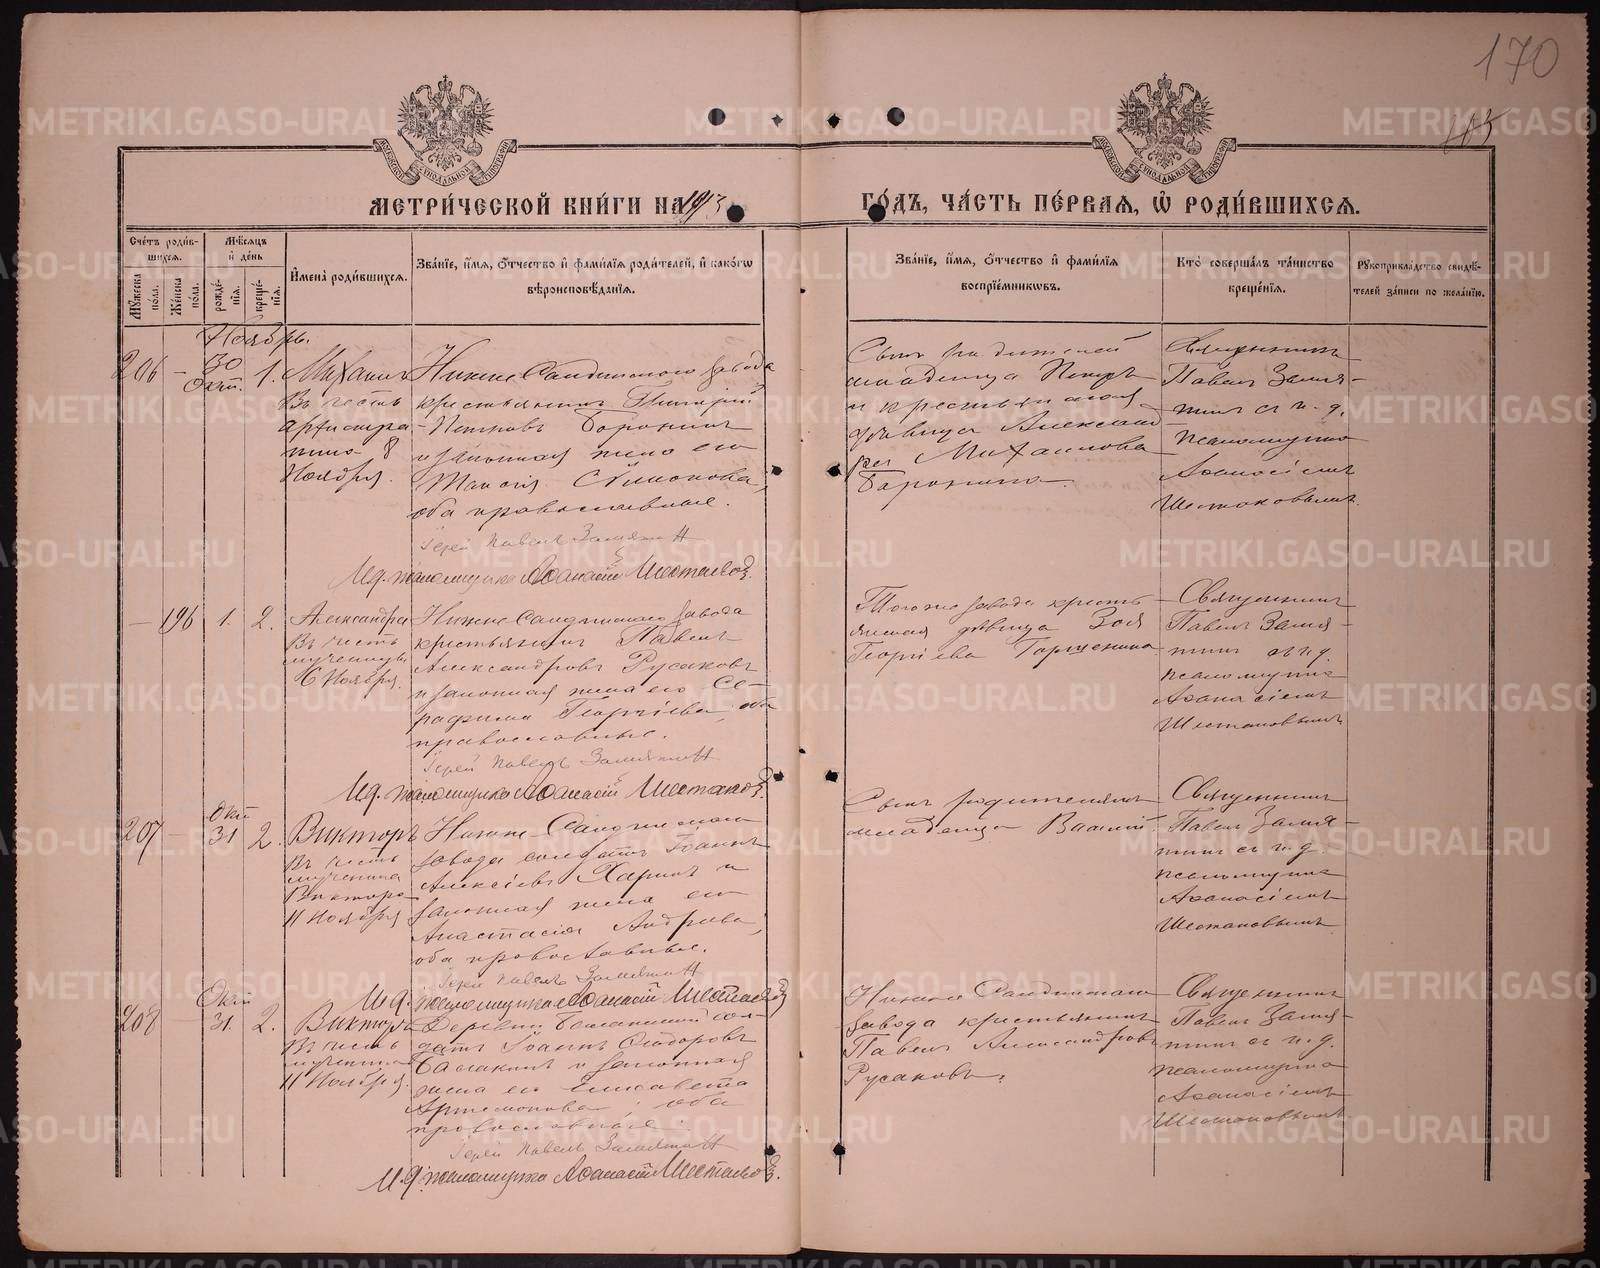 170
МЕТРИ́ЧЕСКОЙ КНИ́ГИ НА 1913
ГО́ДЪ, ЧА́СТЬ ПЕ́РВАЯ, Ѽ РОДИ́ВШИХСЯ.
Сче́тъ роди́в-
шихся.
Му́жеска по́ла.
Же́нска по́ла.
Мѣ́сяцъ
и҆ де́нь
рожде́-
нїя.
креще́-
нїя.
И҆мена̀ роди́вшихся.
Зва́нїе, и҆́мя, ѻ҆́тчество и҆ фами́лїя роди́телей, и҆ како́гѡ
вѣроисповѣ́данїя.
Зва́нїе, и҆́мя, ѻ҆́тчество и҆ фами́лїя
воспрїе́мниковъ.
Кто̀ соверша́лъ та́инство
креще́нїя.
Рꙋкоприкла́дство свидѣ́-
телей за́писи по жела́нїю.
Ноябрь.
206
—
30
Окт.
1.
Михаилъ
Въ честь
архистра-
тига 8
Ноября.
Нижне-Салдинскаго завода
крестьянинъ Григорій
Петровъ Воронинъ
и законная жена его
Симонова,
оба православные.
Іерей Павелъ Замятинъ
И.д. псаломщика Аѳанасій Шестаковъ.
Сынъ родителей
младенца Петръ
и крестьянская
дѣвица Александ-
ра Михаилова
Воронина.
Священникъ
Павелъ Замя-
тинъ съ и.д.
псаломщика
Аѳанасіемъ
Шестаковымъ.
—
196
1.
2.
Александра
Въ честь
мученицы
6 Ноября.
Нижне-Салдинскаго завода
крестьянинъ Павелъ
Александровъ Русаковъ
и законная жена его Се-
рафима Георгіева, оба
православные.
Іерей Павелъ Замятинъ
И.д. псаломщика Аѳанасій Шестаковъ.
Того же завода кресть-
янская дѣвица Зоя
Георгіева
Священникъ
Павелъ Замя-
тинъ съ и.д.
псаломщика
Аѳанасіемъ
Шестаковымъ
207
—
Окт.
31
2.
Викторъ
Въ честь
мученика
Виктора
11 Ноября
Нижне-Салдинскаго
завода солдатъ Іоаннъ
Алексіевъ Харинъ и
законная жена его
Анастасія Андреева,
оба православные.
Іерей Павелъ Замятинъ
И.д. псаломщика Аѳанасій Шестаковъ
Сынъ родителямъ
младенца Василій.
Священникъ
Павелъ Замя-
тинъ съ и.д.
псаломщика
Аѳанасіемъ
Шестаковымъ
208
—
Окт.
31.
2.
Викторъ
Въ честь
мученика
11 Ноября.
Деревни сол-
датъ Іоаннъ Ѳеодоровъ
и законная
жена его Елисавета
Артемонова, оба
православные.
Іерей Павелъ Замятинъ
И.д. псаломщика Аѳанасій Шестаковъ.
Нижне-Салдинскаго
завода крестьянинъ
Павелъ Александровъ
Русаковъ.
Священникъ
Павелъ Замя-
тинъ съ и.д.
псаломщика
Аѳанасіемъ
Шестаковымъ
METRIKI.GASO-URAL.RU